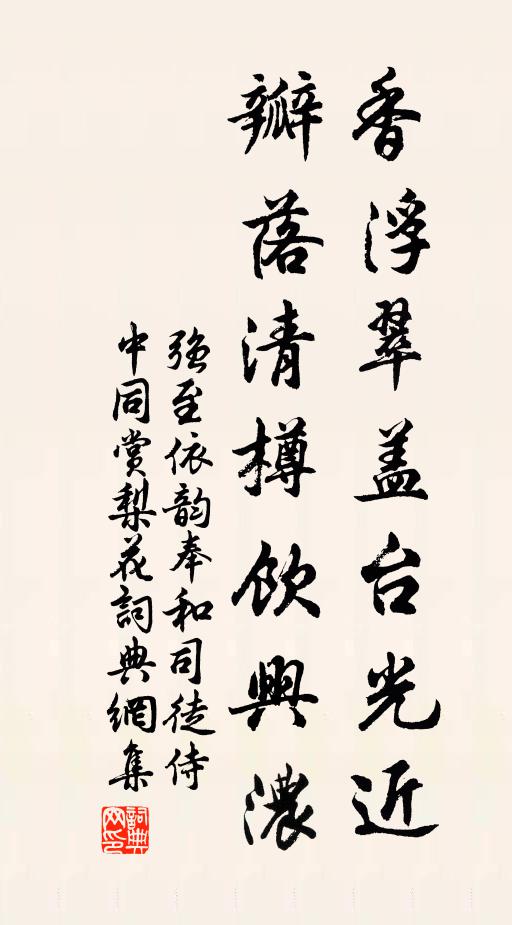 香浮翠盖台光近
瓣落清樽飲興濃
强至依韵奉和司徒侍
中同賞梨花詞典網集
詞典网印